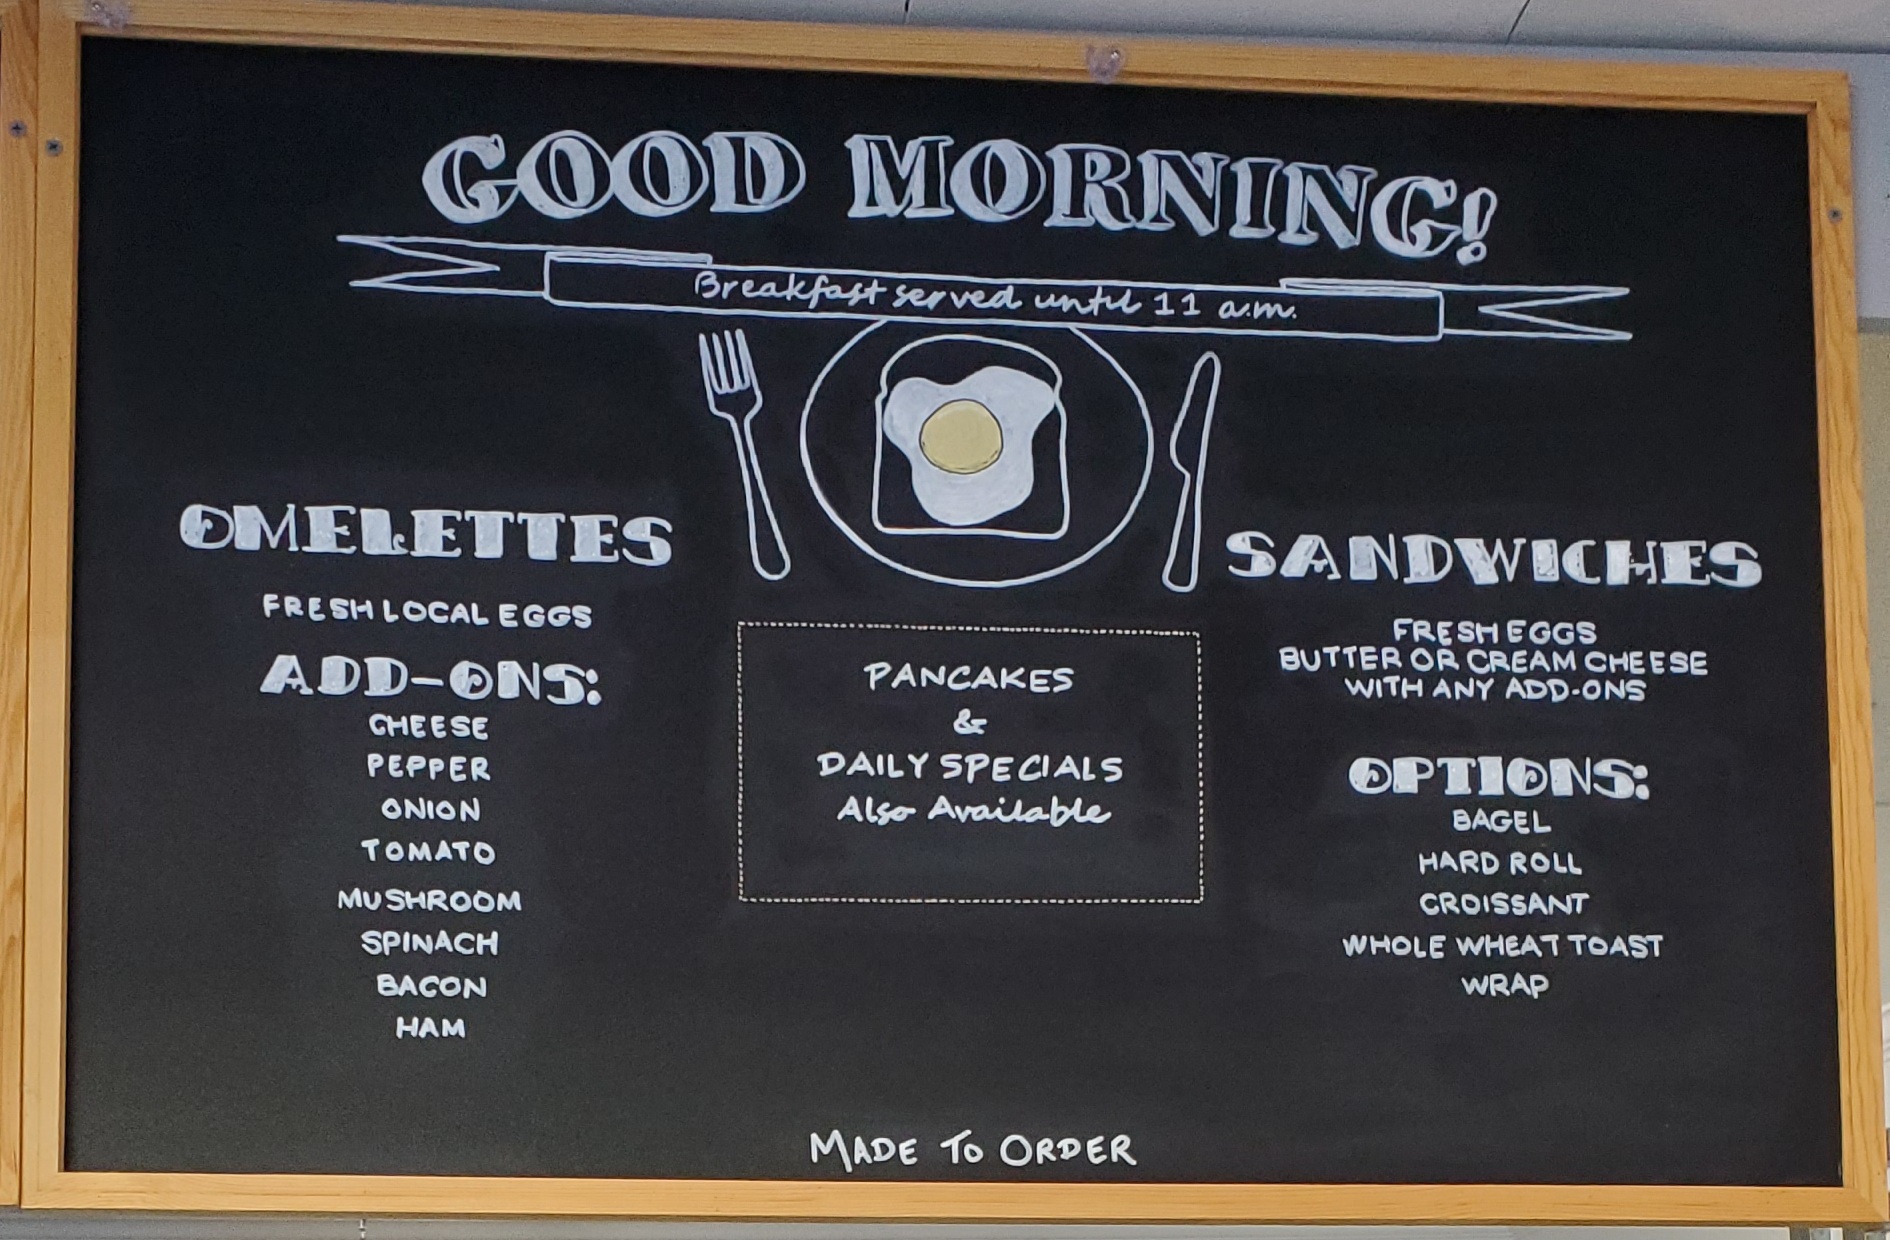 GOOD MORNING!
Breakfast served until 11 a.m.
OMELETTES
FRESH LOCAL EGGS
ADD-ONS:
CHEESE
PEPPER
ONION
TOMATO
MUSHROOM
SPINACH
BACON
HAM
PANCAKES
&
DAILY SPECIALS
Also Available
SANDWICHES
FRESH EGGS
BUTTER OR CREAM CHEESE
WITH ANY ADD-ONS
OPTIONS:
BAGEL
HARD ROLL
CROISSANT
WHOLE WHEAT TOAST
WRAP
MADE TO ORDER